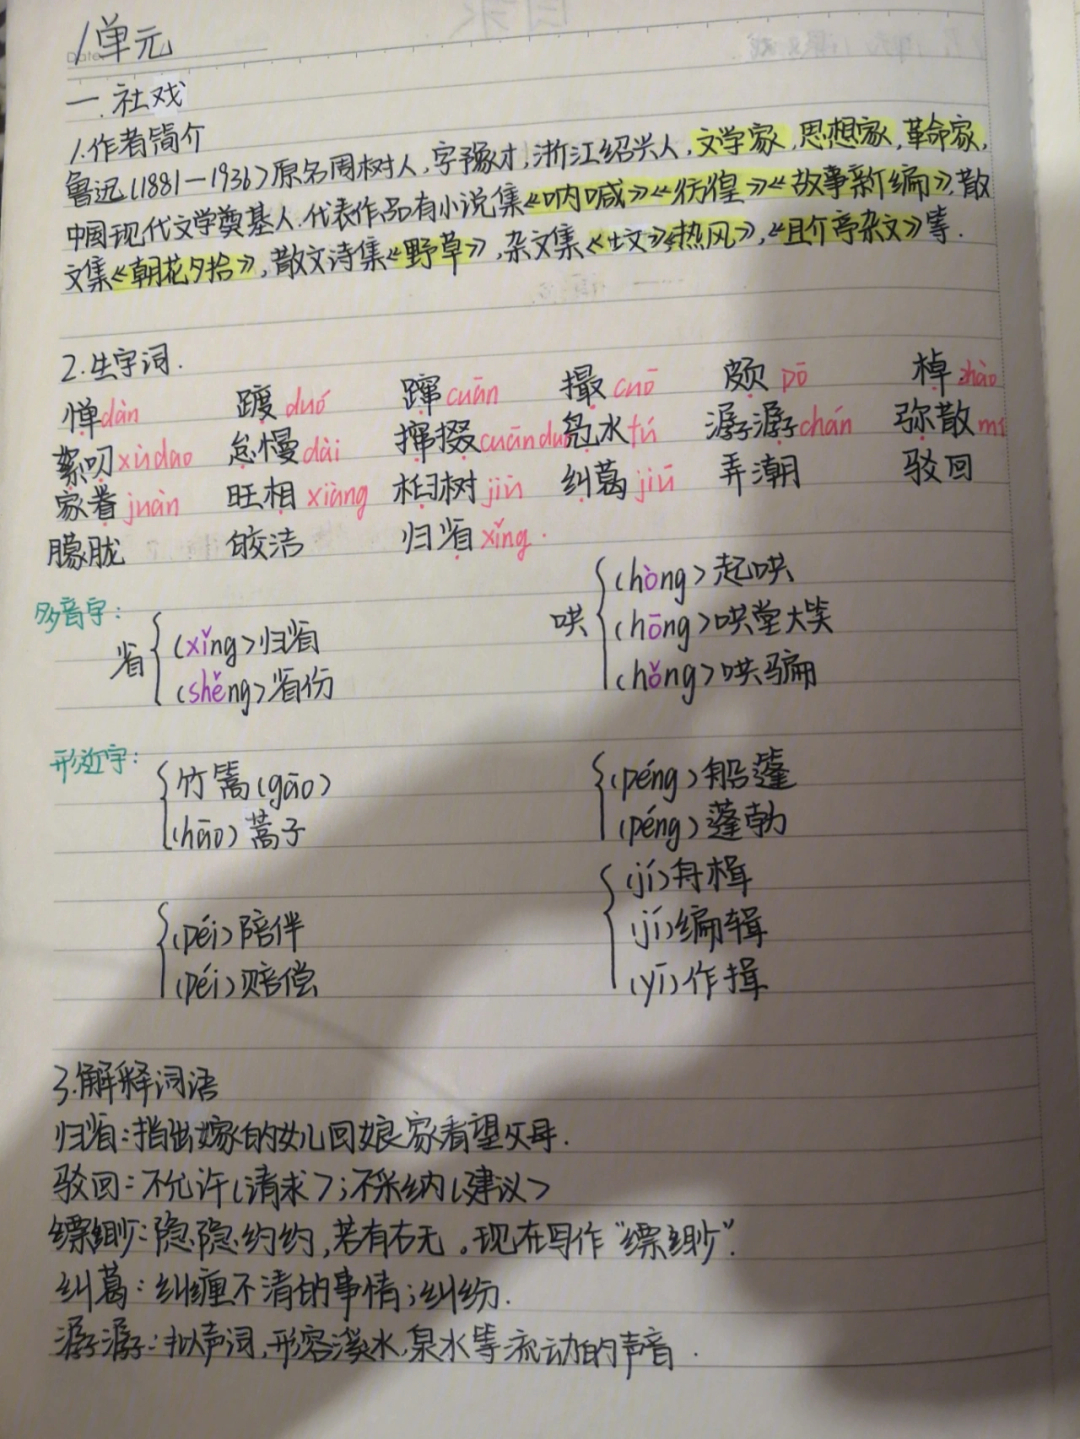 1单元
一.社戏
1.作者简介
鲁迅(1881—1936)原名周树人,字豫才,浙江绍兴人,文学家,思想家,革命家,
中国现代文学奠基人.代表作品有小说集《呐喊》《彷徨》《故事新编》,散
文集《朝花夕拾》,散文诗集《野草》,杂文集《坟》《热风》,《且介亭杂文》等.
2.生字词.
惮dàn 踱duó 蹿cuān 撮cuō 颇pō 棹zhào
絮叨xùdao 怠慢dài 撺掇cuānduo 凫水fú 潺潺chán 弥散mí
家眷juàn 旺相xiàng 桕树jiù 纠葛jiū 弄潮 驳回
朦胧 皎洁 归省xǐng.
多音字:
省 (xǐng)归省
(shěng)省份
哄 (hòng)起哄
(hōng)哄堂大笑
(hǒng)哄骗
形近字:
竹篙(gāo)
(hāo)蒿子
(péng)船篷
(péng)蓬勃
(péi)陪伴
(péi)赔偿
(jí)舟楫
(jí)编辑
(yī)作揖
3.解释词语
归省:指出嫁的女儿回娘家看望父母.
驳回:不允许(请求);不采纳(建议)
缥缈:隐隐约约,若有若无。现在写作“缥缈”.
纠葛:纠缠不清的事情;纠纷.
潺潺:拟声词,形容溪水,泉水等流动的声音.